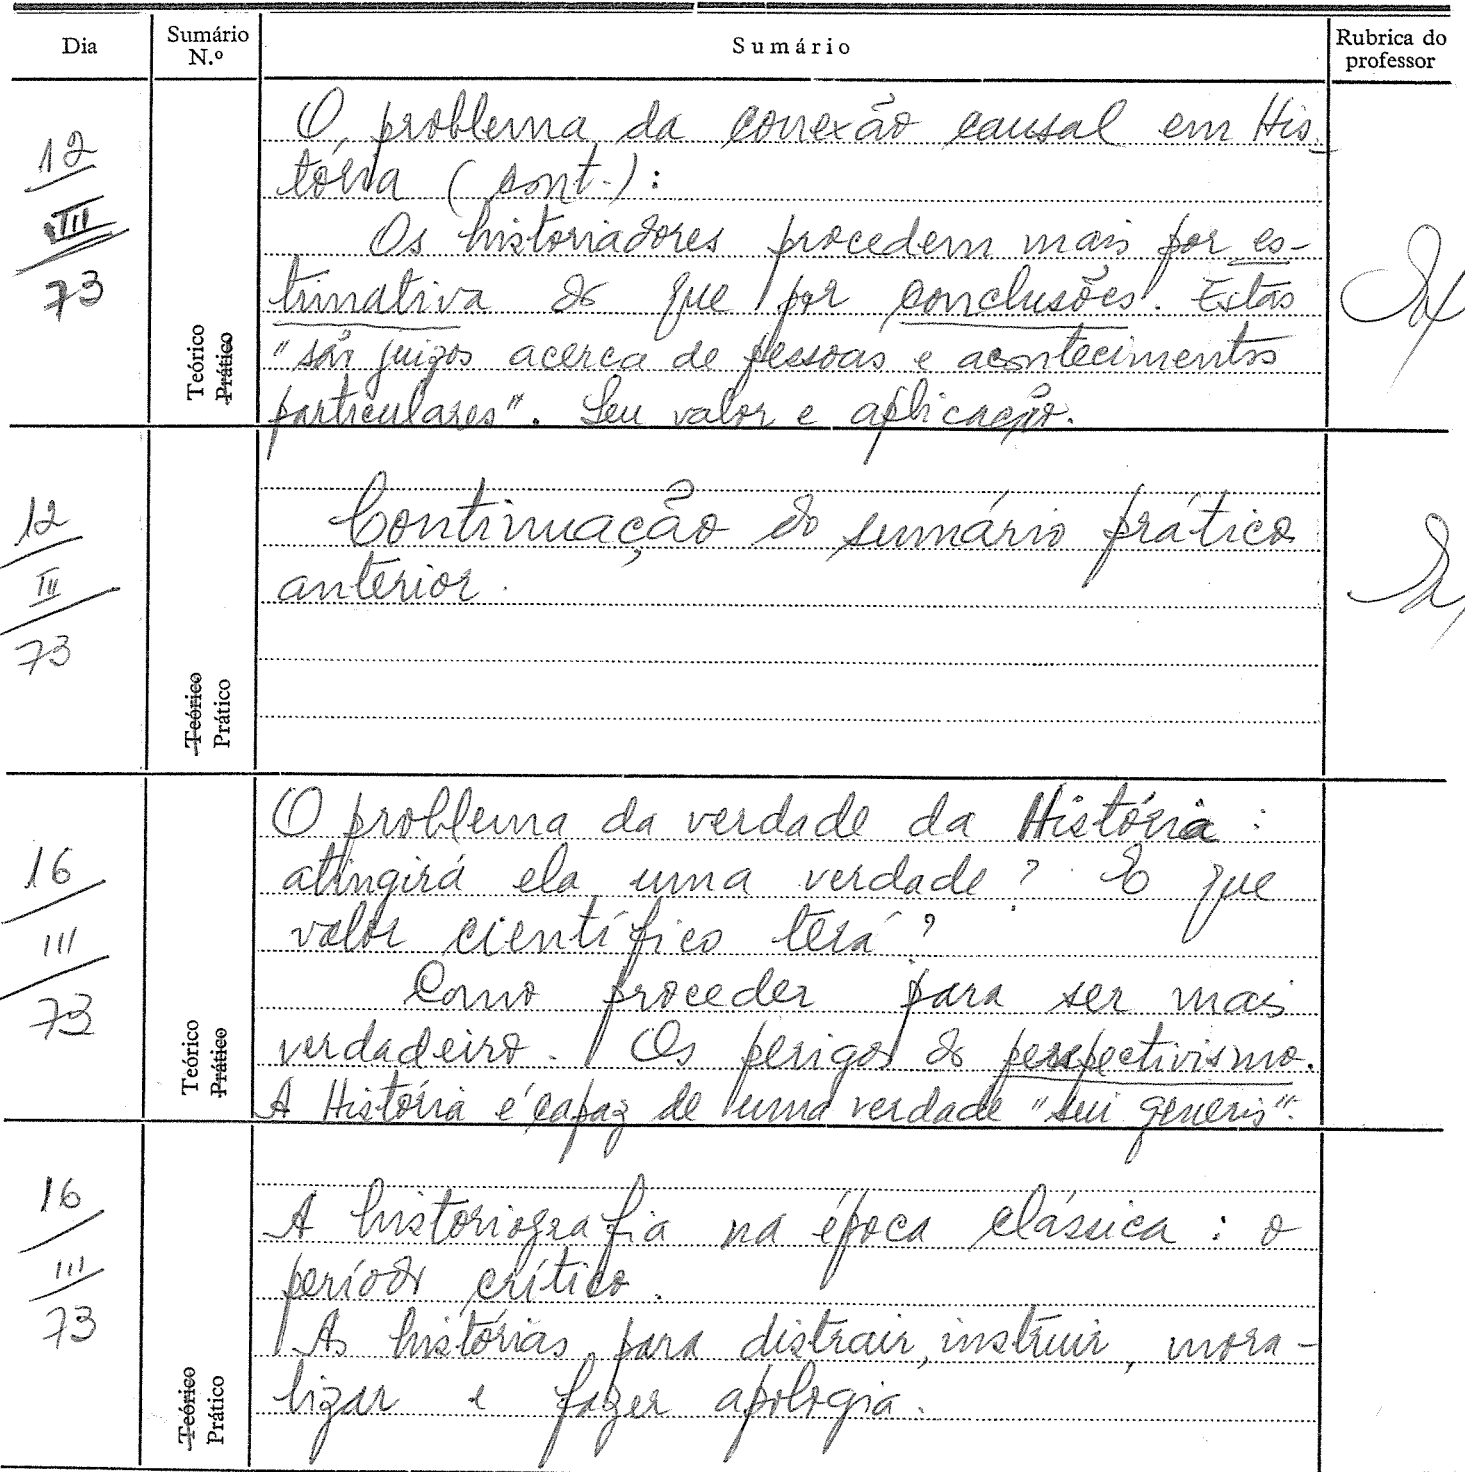 Dia
Sumário N.º
Sumário
Rubrica do professor
12
III
73
Teórico
Prático
O problema da conexão causal em His-
tória (cont.):
Os historiadores procedem mais por es-
timativa do que por conclusões. Estas
"são juizos acerca de pessoas e acontecimentos
particulares". Seu valor e aplicação.
12
III
73
Teórico
Prático
Continuação do sumário prático
anterior.
16
III
73
Teórico
Prático
O problema da verdade da História:
atingirá ela uma verdade? E que
valor científico terá?
Como proceder para ser mais
verdadeiro. Os perigos do perspectivismo.
A História é capaz de uma verdade "sui generis".
16
III
73
Teórico
Prático
A historiografia na época clássica: o
período crítico.
As histórias para distrair, instruir, mora-
lizar e fazer apologia.